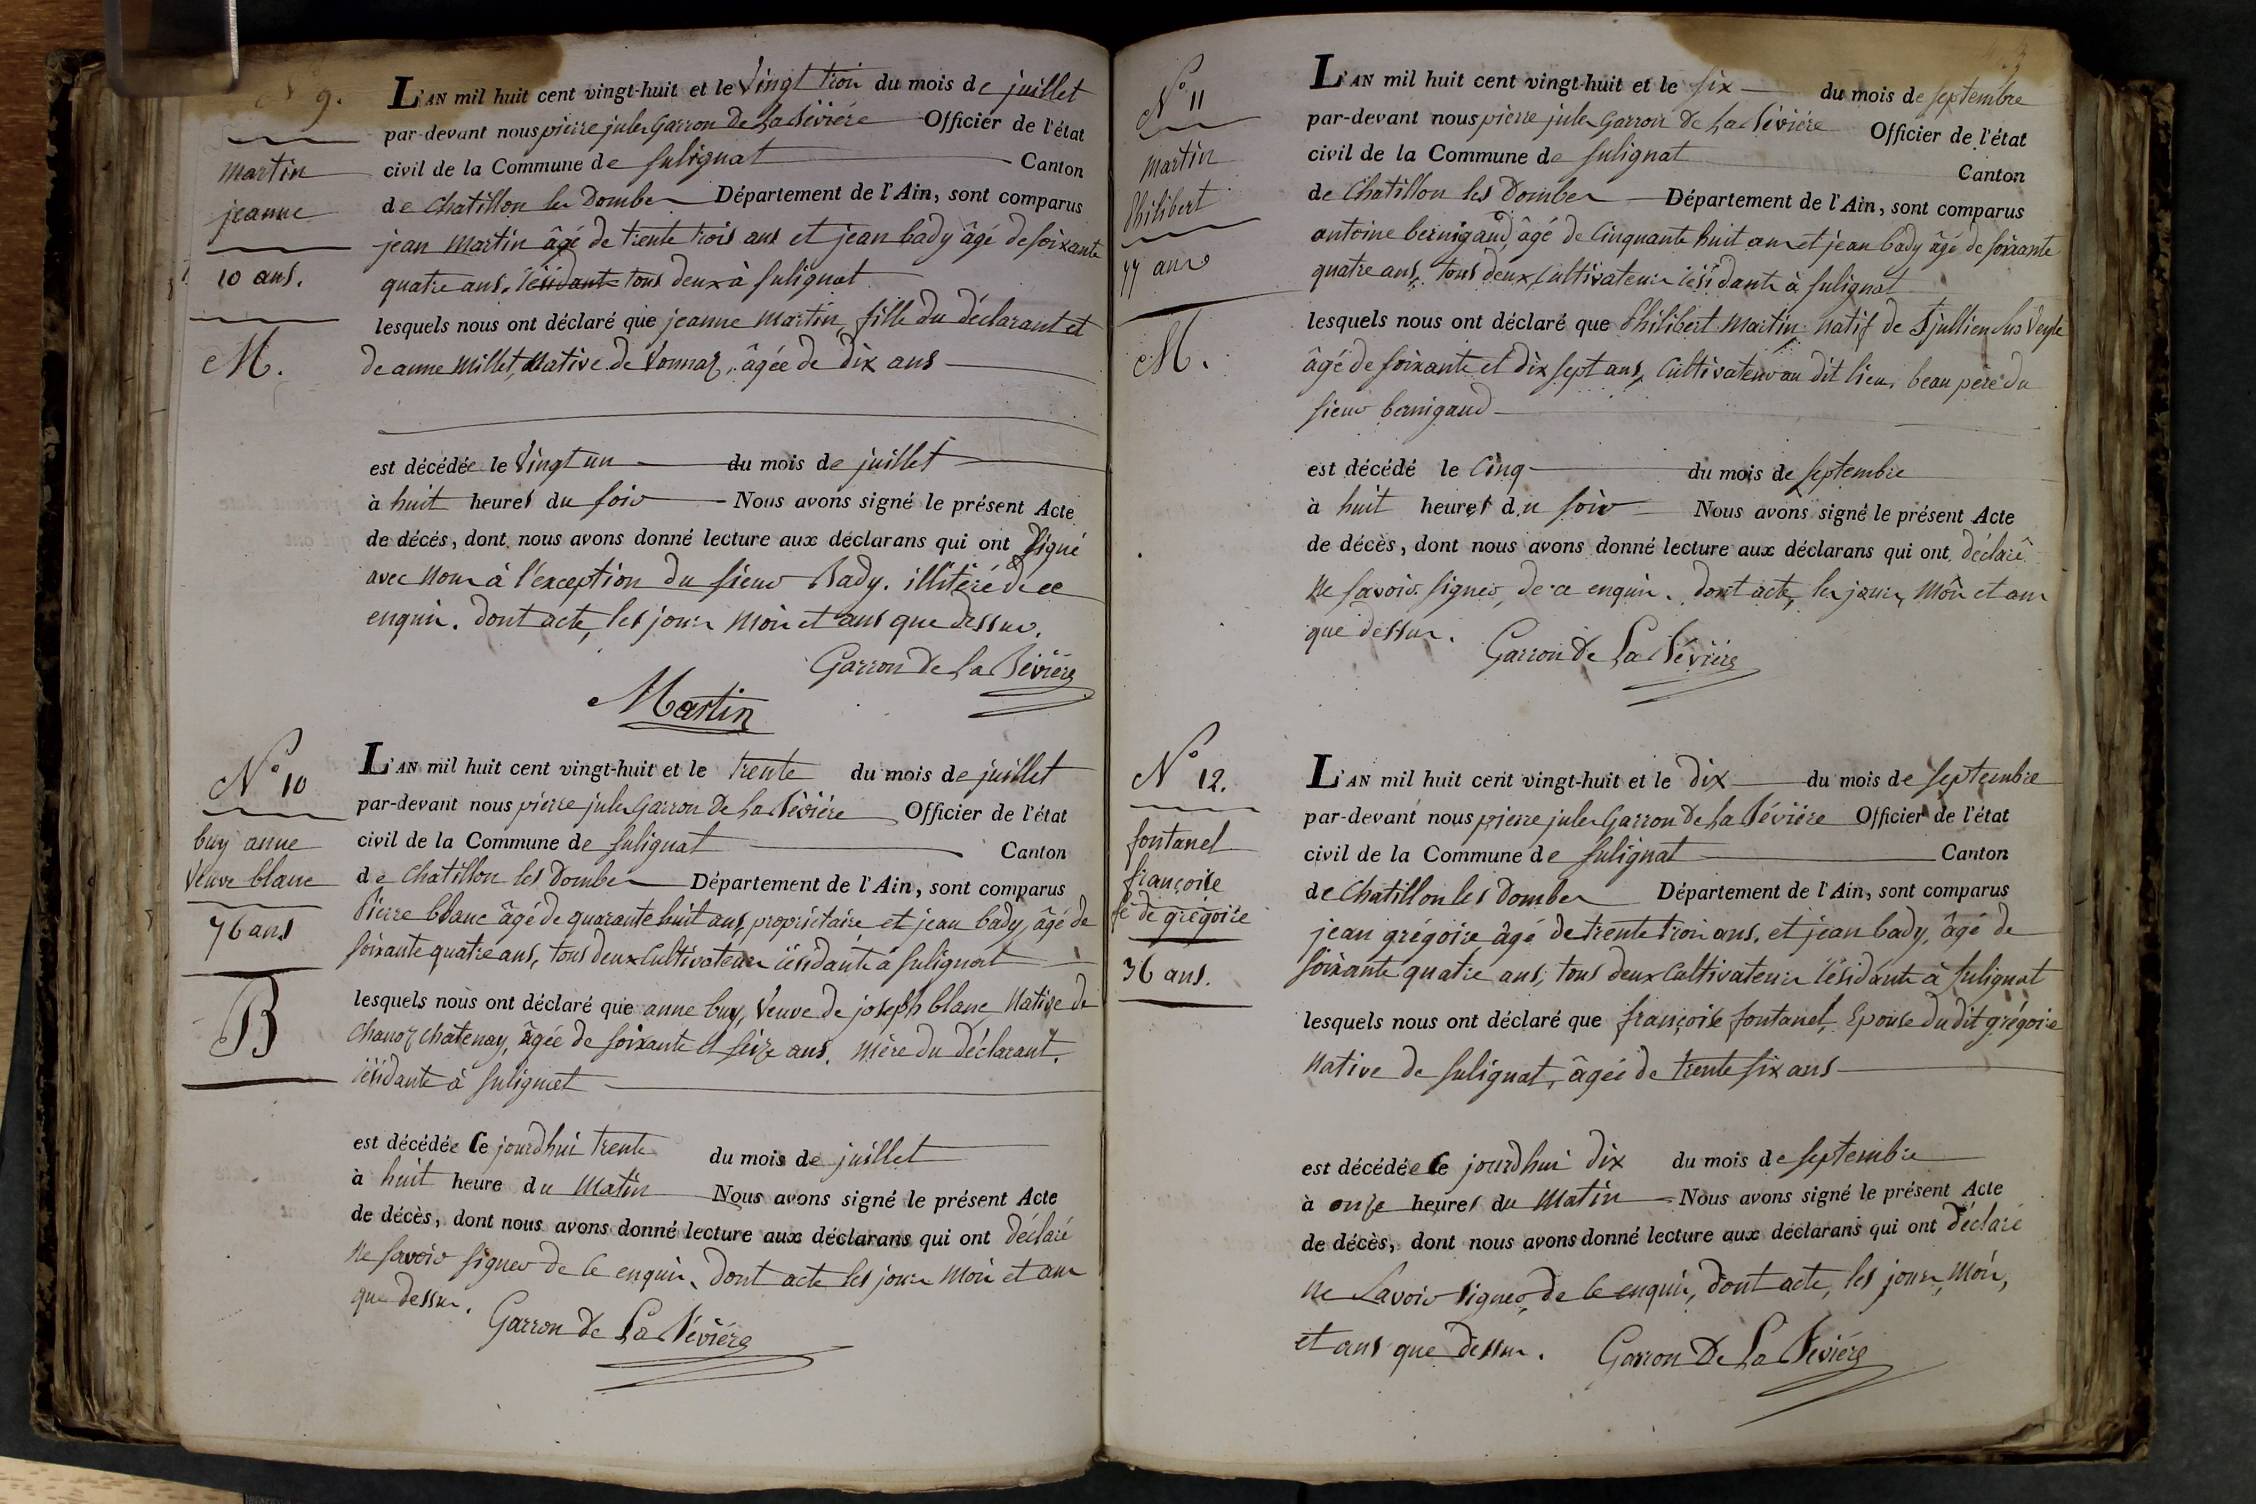 N° 9.
Martin
jeanne
10 ans.
M.
L'AN mil huit cent vingt-huit et le Vingt trois du mois de juillet
par-devant nous pierre jules Garron De La Bévière Officier de l'état
civil de la Commune de Sulignat Canton
de Chatillon les Dombes Département de l'Ain, sont comparus
jean Martin âgé de trente trois ans et jean bady âgé de soixante
quatre ans, résidants tous deux à Sulignat
lesquels nous ont déclaré que jeanne Martin, fille du déclarant et
de anne Millet, Native de Vonnaz, âgée de dix ans
est décédée le Vingt un du mois de juillet
à huit heures du soir Nous avons signé le présent Acte
de décès, dont nous avons donné lecture aux déclarans qui ont signé
avec nous à l'exception du sieur Bady. illitéré de ce
enquis. dont acte, les jour mois et ans que dessus.
Garron De La Bévière
Martin
N° 10
buy anne
Veuve blanc
76 ans
B
L'AN mil huit cent vingt-huit et le trente du mois de juillet
par-devant nous pierre jules Garron De La Bévière Officier de l'état
civil de la Commune de Sulignat Canton
de Chatillon les Dombes Département de l'Ain, sont comparus
Pierre blanc âgé de quarante huit ans, propriétaire et jean bady, âgé de
soixante quatre ans, tous deux Cultivateurs résidants à Sulignat
lesquels nous ont déclaré que anne buy, Veuve de joseph blanc Native de
Chanoz chatenay, âgée de soixante et seize ans, mère du déclarant,
résidante à Sulignat
est décédée Ce jourdhui trente du mois de juillet
à huit heure du Matin Nous avons signé le présent Acte
de décès, dont nous avons donné lecture aux déclarans qui ont déclaré
Ne savoir signer de ce enquis, dont acte les jour mois et ans
que dessus.
Garron De La Bévière
N° 11
Martin
Philibert
77 ans
M.
L'AN mil huit cent vingt-huit et le six du mois de septembre
par-devant nous pierre jules Garron De La Bévière Officier de l'état
civil de la Commune de Sulignat Canton
de Chatillon les Dombes Département de l'Ain, sont comparus
antoine bernigaud, âgé de Cinquante huit ans et jean bady âgé de soixante
quatre ans, tous deux Cultivateurs résidants à Sulignat
lesquels nous ont déclaré que Philibert Martin natif de St jullien sus Veyle
âgé de soixante et dix sept ans, Cultivateur au dit lieu, beau père du
sieur bernigaud
est décédé le Cinq du mois de septembre
à huit heures du soir Nous avons signé le présent Acte
de décès, dont nous avons donné lecture aux déclarans qui ont déclaré
Ne savoir signer, de ce enquis. dont acte, les jours, mois et ans
que dessus.
Garron De La Bévière
N° 12.
fontanel
françoise
fe de grégoire
36 ans.
L'AN mil huit cent vingt-huit et le dix du mois de septembre
par-devant nous pierre jules Garron De La Bévière Officier de l'état
civil de la Commune de Sulignat Canton
de Chatillon les Dombes Département de l'Ain, sont comparus
jean grégoire âgé de trente trois ans, et jean bady, âgé de
soixante quatre ans, tous deux Cultivateurs résidants à Sulignat
lesquels nous ont déclaré que françoise fontanel, Epouse du dit grégoire
native de Sulignat, âgée de trente six ans
est décédée Ce jourdhui dix du mois de septembre
à onze heures du Matin Nous avons signé le présent Acte
de décès, dont nous avons donné lecture aux déclarans qui ont déclaré
Ne savoir signer, de ce enquis, dont acte, les jours, mois,
et ans que dessus.
Garron De La Bévière